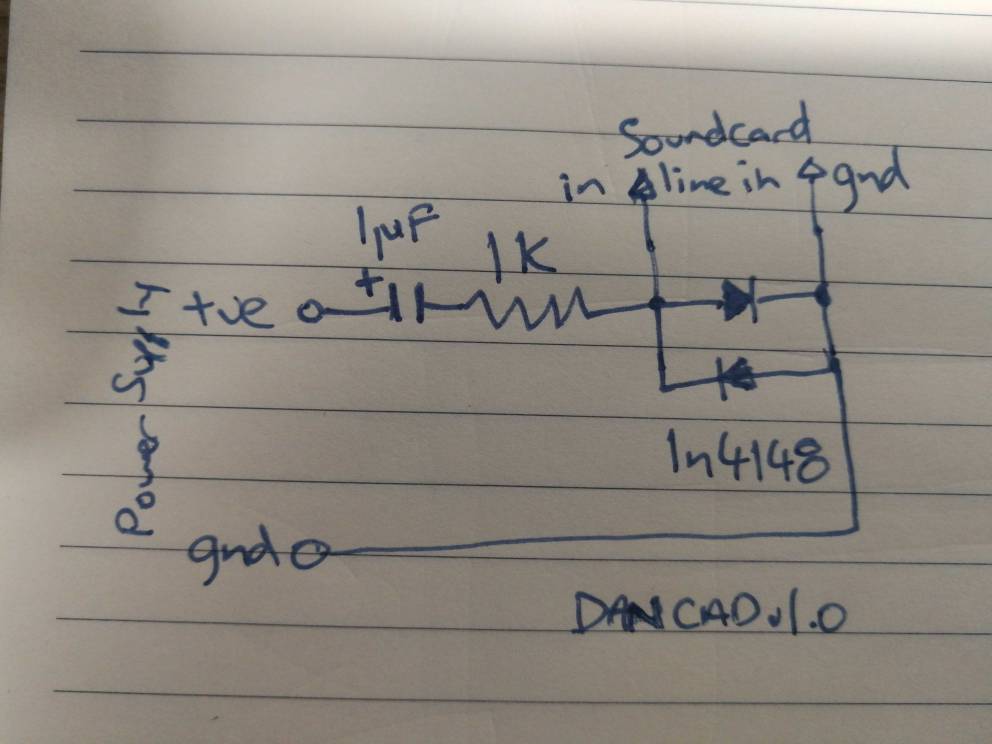 Soundcard
in line in gnd
1µF
1K
+
+ve
Power Supply
1n4148
gnd
DANCAD.1.0